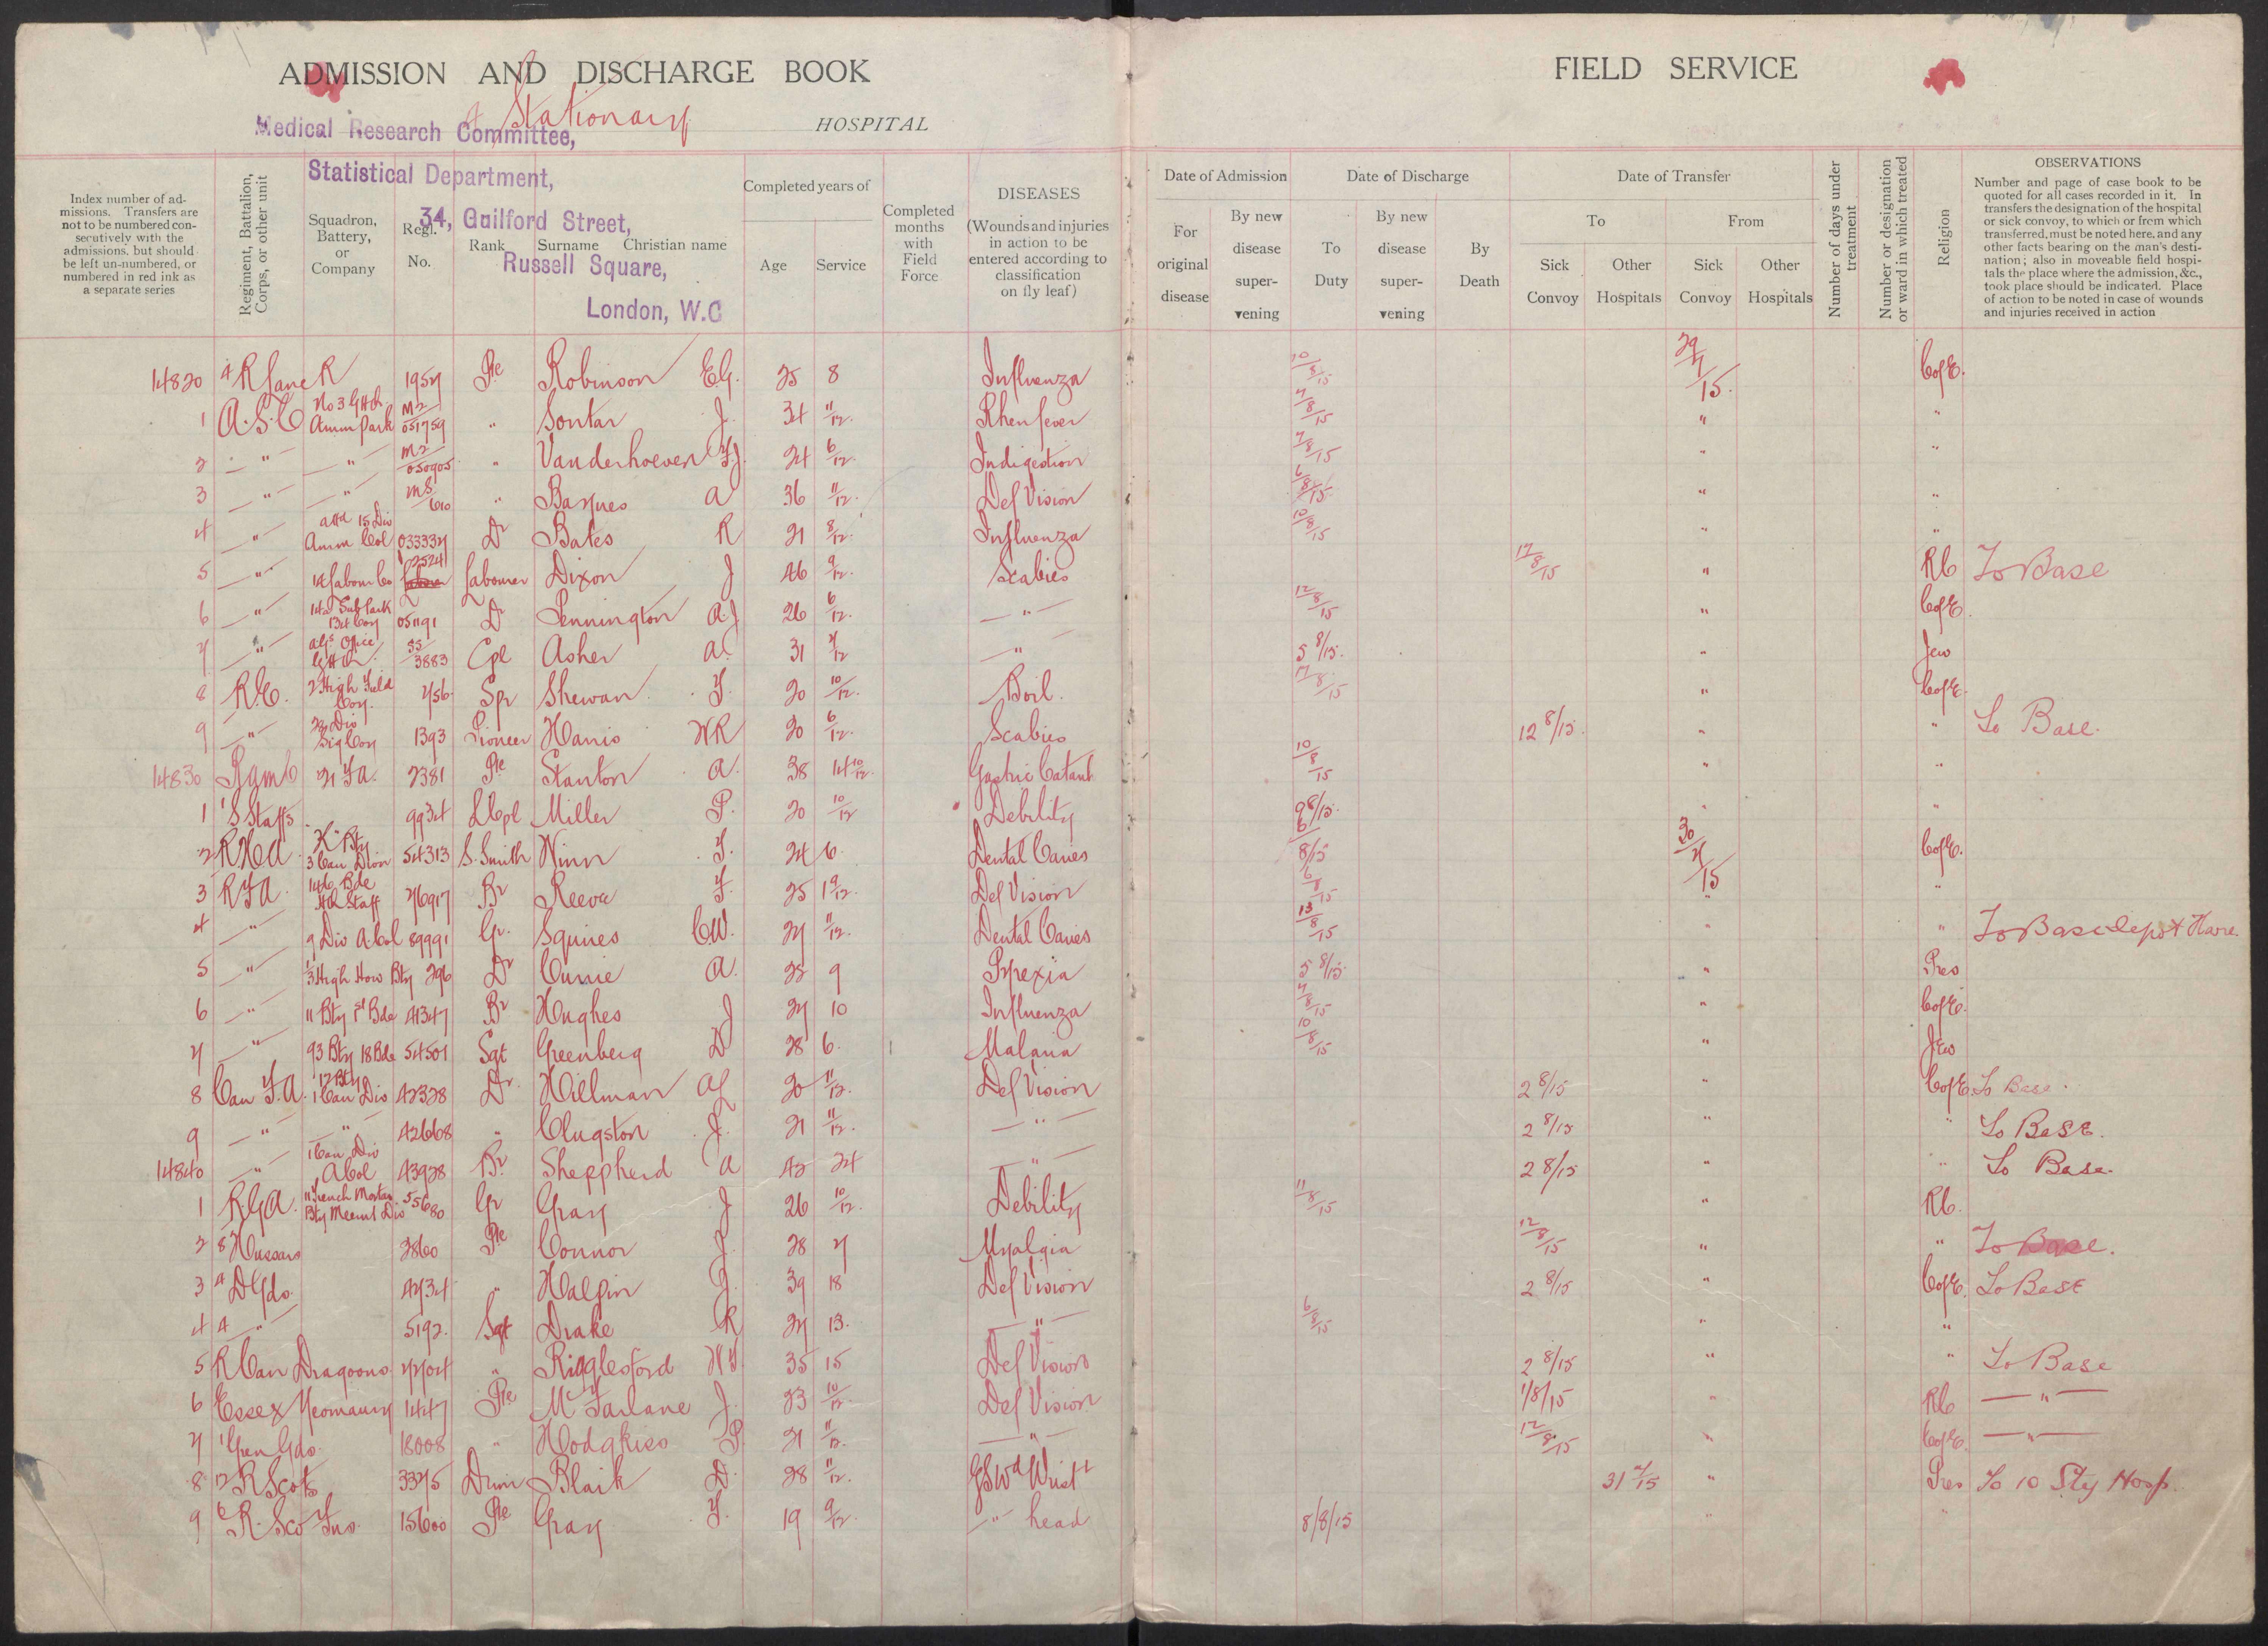 ADMISSION AND DISCHARGE BOOK
FIELD SERVICE
4 Stationary HOSPITAL
Medical Research Committee,
Statistical Department,
34, Guilford Street,
Russell Square,
London, W.C
Index number of admissions. Transfers are not to be numbered consecutively with the admissions, but should be left un-numbered, or numbered in red ink as a separate series
Regiment, Battalion, Corps, or other unit
Squadron, Battery, or Company
Regl. No.
Rank
Surname Christian name
Completed years of
Age Service
Completed months with Field Force
DISEASES
(Wounds and injuries in action to be entered according to classification on fly leaf)
Date of Admission
For original disease
By new disease supervening
Date of Discharge
To Duty
By new disease supervening
By Death
Date of Transfer
To
Sick Convoy
Other Hospitals
From
Sick Convoy
Other Hospitals
Number of days under treatment
Number or designation or ward in which treated
Religion
OBSERVATIONS
Number and page of case book to be quoted for all cases recorded in it. In transfers the designation of the hospital or sick convoy, to which or from which transferred, must be noted here, and any other facts bearing on the man's destination; also in moveable field hospitals the place where the admission, &c., took place should be indicated. Place of action to be noted in case of wounds and injuries received in action
14820 4 R Lanc R 1957 Pte Robinson E.G. 25 8 Influenza 10/8/15 29/7/15 C of E.
1 A.S.C No 3 GHQ Amm Park M2/051759 " Sontar J. 34 11/12 Rheu fever 7/8/15 " "
2 " " M2/050905 " Vanderhoeven 24 6/12 Indigestion 7/8/15 " "
3 " " MS/610 " A 36 11/12 Def Vision 6/8/15 " "
4 " attd 15 Div Amm Col 033337 Dr Bates R 21 8/12 Influenza 10/8/15 " "
5 " Labour Co 12524 Labourer Dixon J 46 9/12 Scabies 17/8/15 " RC To Base
6 " Sub Park 051191 Dr Pennington A.J 26 6/12 " 12/8/15 " C of E.
7 " Office SS/3883 Cpl Asher A. 31 7/12 " 5 8/15 " Jew
8 R.E. 2 High Field Coy. 756 Spr Shewan F. 20 10/12 Boil. 17/8/15 " C of E.
9 " Div Sig Coy 1393 Pioneer Harris WR 20 6/12 Scabies 12 8/15 " " To Base.
14830 Ramc 21 F.A. 2381 Pte Stanton A. 38 14 10/12 Gastric Catarrh 10/8/15 " "
1 1 S Staffs 9934 L Cpl Miller P. 20 10/12 Debility 9 8/15 " "
2 R.H.A. Bty 3 Cav Divn 54313 S. Smith Winn F. 24 6 Dental Caries 6 8/15 30/7/15 C of E.
3 R F A. Bde HQ Staff 76917 Br Reeve F. 25 1 9/12 Def Vision 6/8/15 " "
4 " 9 Div A. Col 89991 Gr. Squires C.W. 27 11/12 Dental Caries 13/8/15 " " To Base depot Havre.
5 " 1/3 High How Bty 296 Dr Currie A. 25 9 Pyrexia 5 8/15 " Pres
6 " 11 Bty 1st Bde 41347 Br Hughes J 27 10 Influenza 7/8/15 " C of E.
7 " 93 Bty 18 Bde 54501 Sgt Greenberg D 28 6. Malaria 10/8/15 " Jew
8 Can F.A. 12 Bty 1 Can Div 42328 Dr. Hillman 20 11/12 Def Vision 2 8/15 " C of E. To Base.
9 " " 42668 " Clugston J. 21 11/12 " 2 8/15 " " To Base.
14840 " 1 Can Div A Col 43928 Br Sheppherd A 42 24 " 2 8/15 " " To Base.
1 R.G.A. 11 Trench Mortar Bty Meerut Div 55680 Gr Gray J 26 10/12 Debility 11/8/15 " RC.
2 8 Hussars 2860 Pte Connor J. 28 7 Myalgia 12/8/15 " " To Base.
3 4 D Gds 4734 " Halpin J. 39 18 Def Vision 2 8/15 " C of E. To Base
4 4 " 5192. Sgt Drake R 27 13. " 6/8/15 " "
5 R Can Dragoons. 2204 " Rigglesford 35 15 Def Vision 2 8/15 " " To Base
6 Essex Yeomanry 1447 Pte McFarlane J. 23 10/12 Def Vision 1/8/15 " RC "
7 1 Gren Gds. 18008 " Hodgkiss P. 21 11/12 " 12/8/15 " C of E. "
8 12 R Scots 3375 Drum Blaik D. 28 11/12 GSWd Wrist 31 7/15 " Pres To 10 Sty Hosp.
9 6 R. Sco Fus. 15600 Pte Gray F. 19 9/12 " head 8/8/15 " "